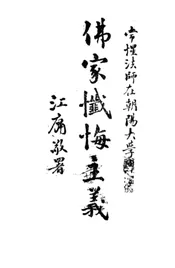 常惺法師在朝陽大學
佛家懺悔主義
江庸敬署